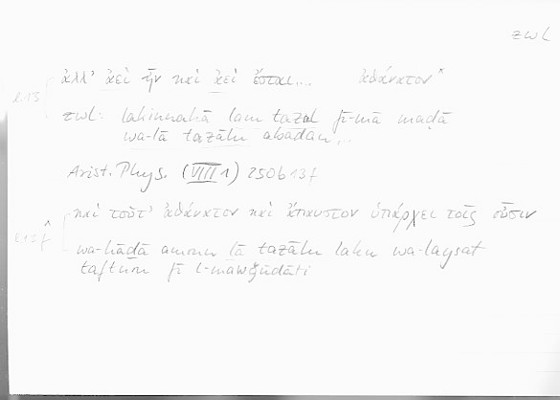 zwl
ἀλλ' ἀεὶ ἦν καὶ ἀεὶ ἔσται... ἀθάνατον^
zwl: lākinnahā lam tazal fī-mā maḍā
wa-lā tazālu abadan...
Arist. Phys. (VIII 1) 250b13f
καὶ τοῦτ' ἀθάνατον καὶ ἄπαυστον ὑπάρχει τοῖς οὖσιν
wa-hāḏā amrun lā tazālu lahu wa-laysat
taftūru fī l-mawǧūdāti